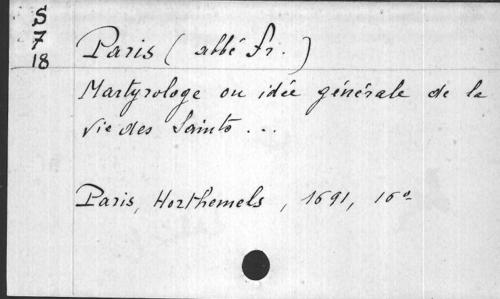 S
7
18
Paris (abbé Fr.)
Martyrologe ou idée générale de la
vie des Saints...
Paris, Horthemels, 1691, 16°